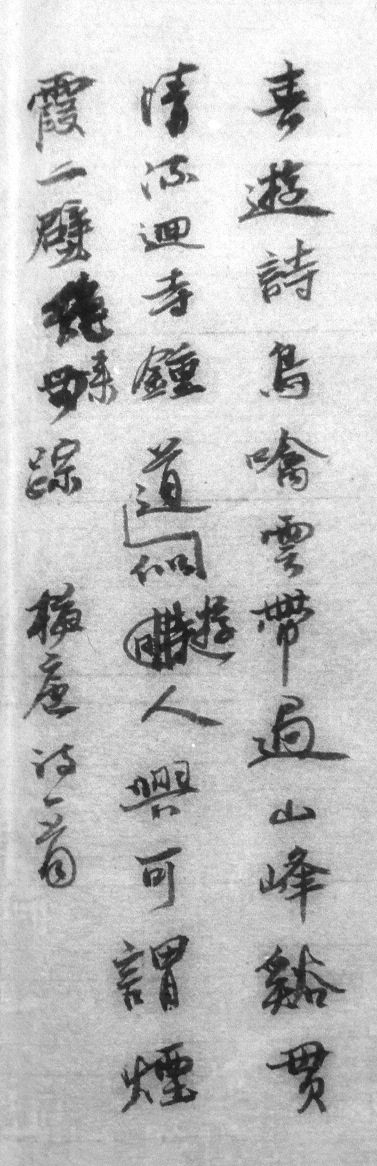 春遊詩鳥噙雲帶過山峰谿贯
清流迴寺鐘道似遊人興可謂煙
霞二壁係踪 㯽庵詩一首